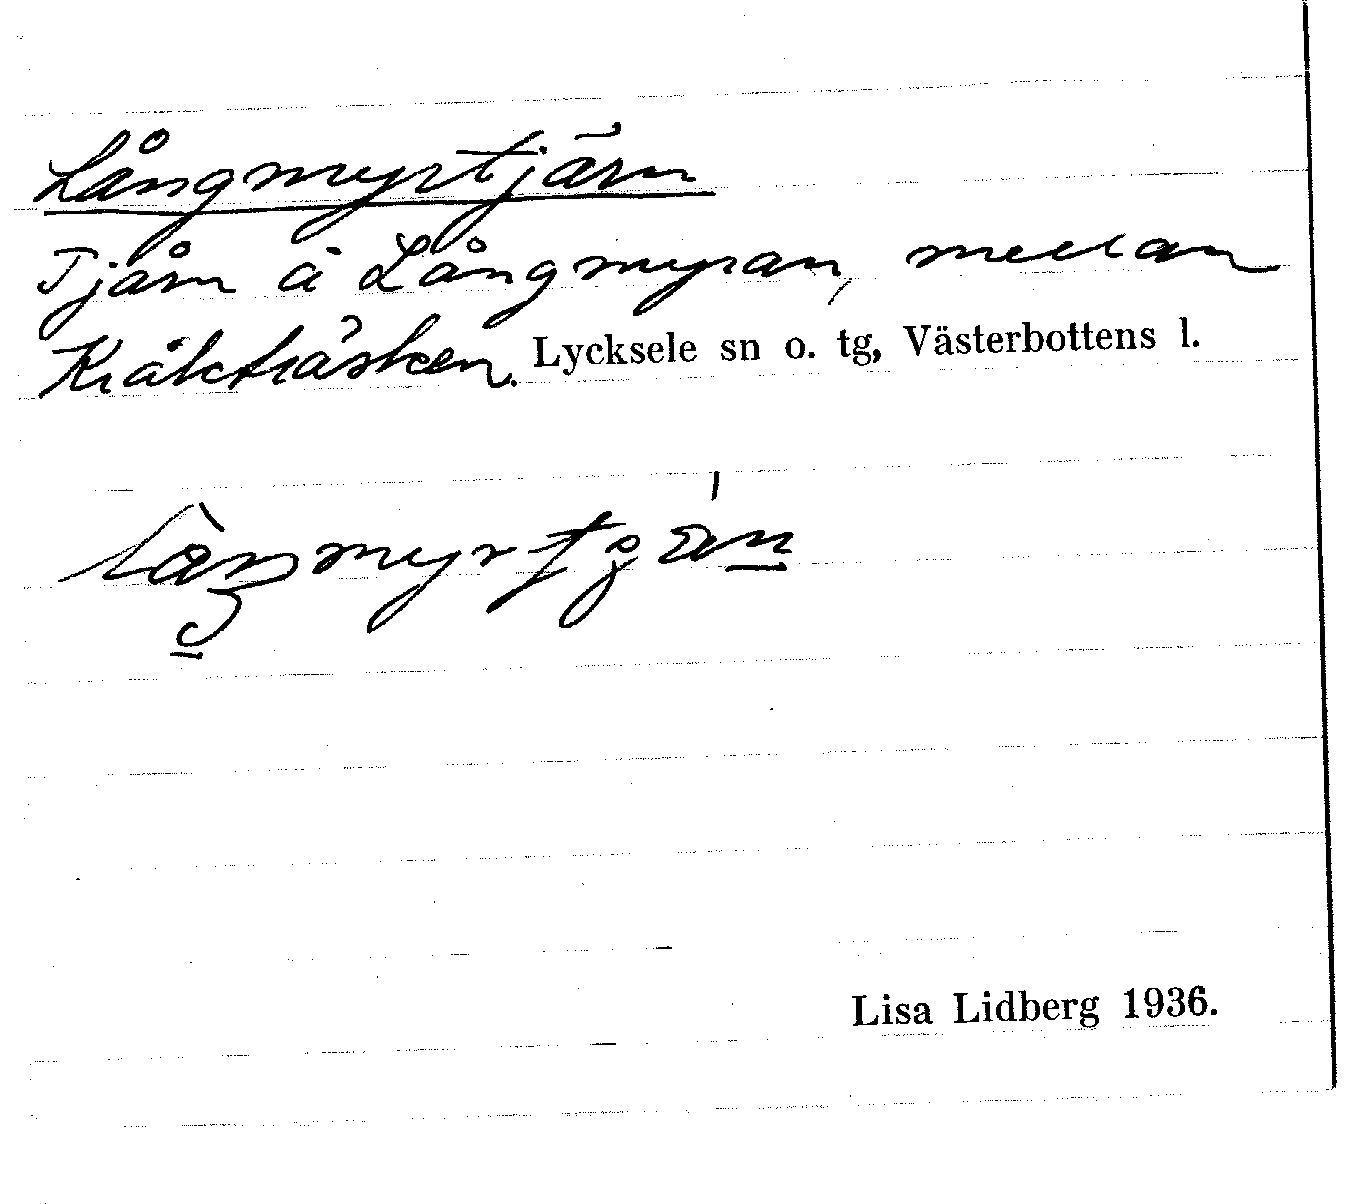 Långmyrtjärn
Tjärn å Långmyran, mellan
Kråkträsken. Lycksele sn o. tg, Västerbottens l.
Lisa Lidberg 1936.